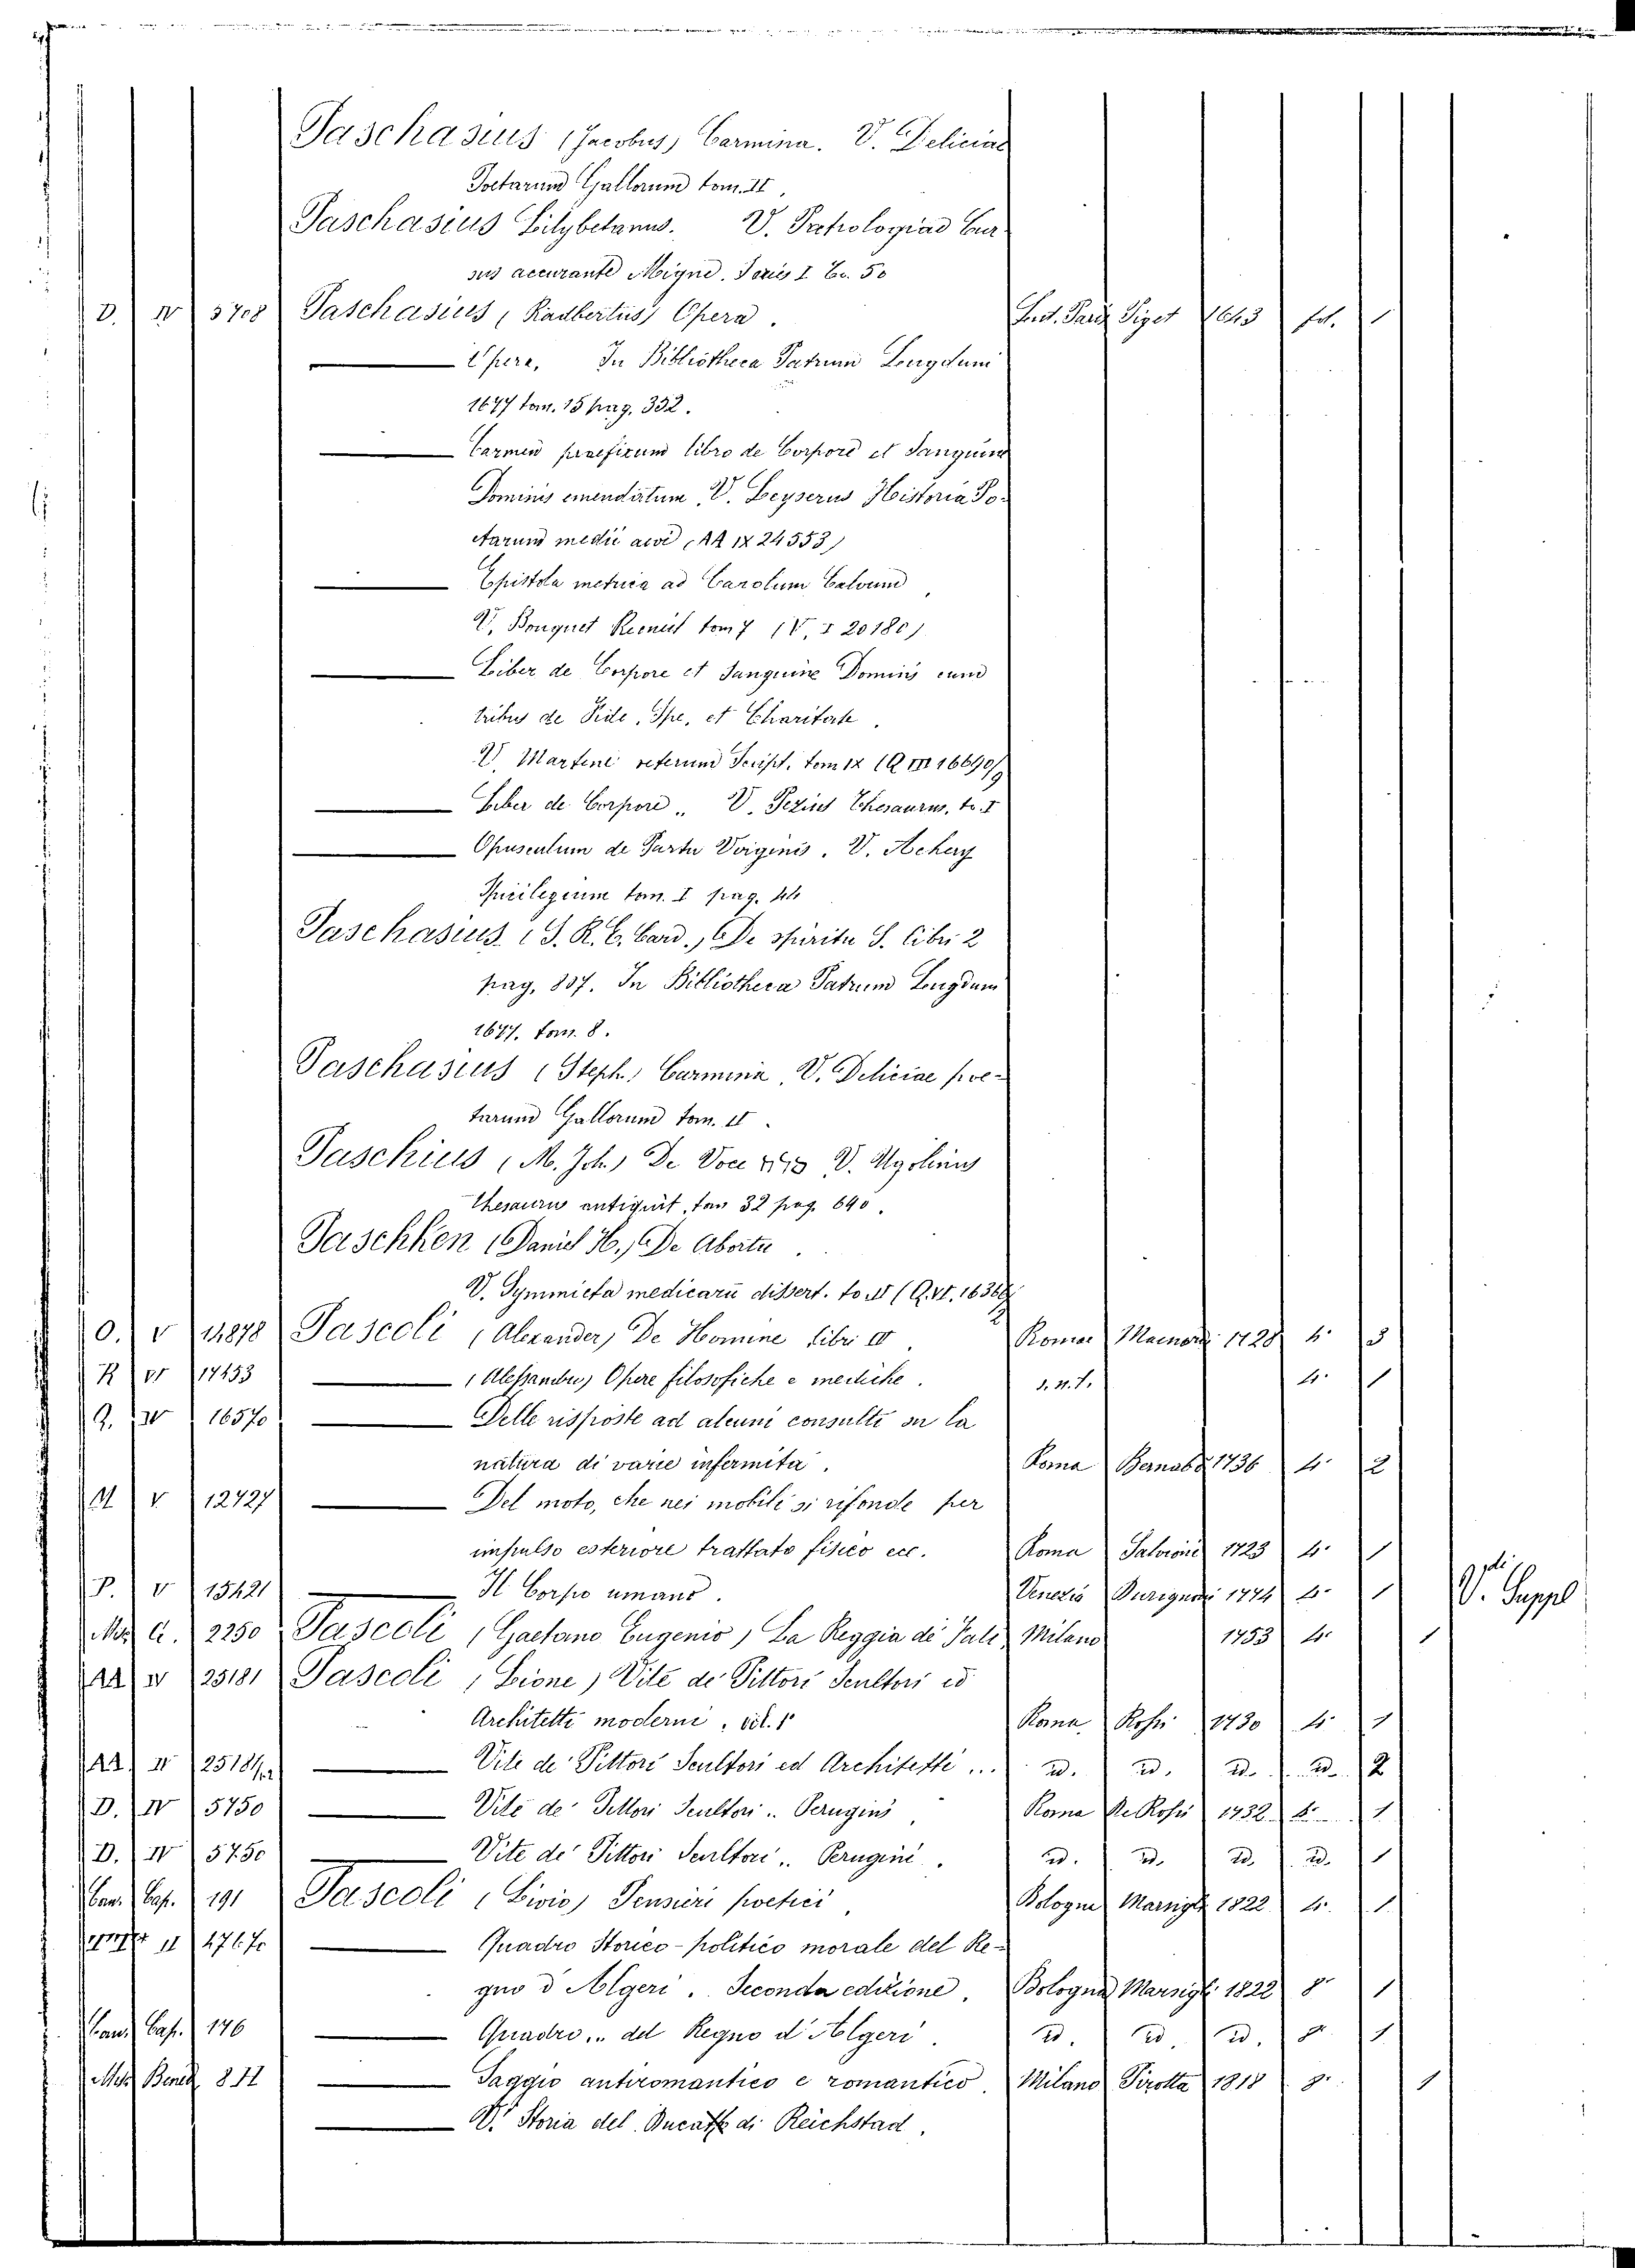 Paschasius (Jacobus) Carmina. V. Deliciae
Poetarum Gallorum tom. II.
Paschasius Lilybetanus. V. Patrologiae Cur-
sus accurante Migne. Series I to. 50
D. IV 5708 Paschasius (Radbertus) Opera. Lut. Paris Piget 1643 fol. 1
Opera, In Bibliotheca Patrum Lengduni
1677 tom. 15 pag. 332.
Carmen praefixum libro de Corpore et Sanguine
Dominis emendatum. V. Leyserus Historia Po-
etarum medii aevi (AA IX 24553)
Epistola metrica ad Carolum Calvum
V. Bouquet Recueil tom 7 (V. I 20180)
Liber de Corpore et Sanguine Dominis cum
tribus de Fide, Spe, et Charitate.
V. Martene veterum Script. tom IX (Q III 16690)
Liber de Corpore .. V. Pezius Thesaurus, to. I
Opusculum de Partu Virginis. V. Achery
Spicilegium tom. I pag. 44
Paschasius (S. R. E. Card.) De spiritu S. libri 2
pag. 807. In Bibliotheca Patrum Lengduni
1677. tom. 8.
Paschasius (Steph.) Carmina, V. Deliciae poe-
tarum Gallorum tom. II.
Paschius (M. Joh.) De Voce V. Ugolinus
Thesaurus antiquit. tom 32 pag. 640.
Paschken (Daniel H.) De Abortu.
V. Symmicta medicarū dissert. to II (Q. VI. 16366)
O. V 14878 Pascoli (Alexander) De Homine libri IV. Romae Mainardi 1728 4° 3
R VI 17453 (Alessandro) Opere filosofiche e mediche. s. n. t. 4° 1
Q. IV 16570 Delle risposte ad alcuni consulti su la
natura di varie infermità. Roma Bernabò 1736 4° 2
M V 12727 Del moto, che nei mobili si rifonde per
impulso esteriore trattato fisico ecc. Roma Salvioni 1723 4° 1
P. V 15421 Il Corpo umano. Venezia 1774 4° 1 V. Suppl
Mez. C. 2250 Pascoli (Gaetano Eugenio) La Reggia di Pale Milano 1753 4° 1
AA IV 25181 Pascoli (Lione) Vite de' Pittori Scultori ed
Architetti moderni. vol. 1° Roma. Rossi 1730 4° 1
AA II 25181/2 Vite de' Pittori Scultori ed Architetti ... id. id. id. id. 2
D. IV 5750 Vite de' Pittori Scultori .. Perugini. Roma De Rossi 1732 4° 1
D. IV 5750 Vite de' Pittori Scultori .. Perugini. id. id. id. id. 1
Can. Cap. 191 Pascoli (Livio) Pensieri poetici. Bologna Marsigli 1822 4. 1.
II 4767c Quadro Storico-politico morale del Re-
gno d'Algeri. Seconda edizione. Bologna Marsigli 1822 8° 1
Can. Cap. 146 Quadro... del Regno d'Algeri. id. id. id. 8° 1
Mez. Bened. 811 Saggio antiromantico e romantico. Milano Pirotta 1818 8° 1
V. Storia del Ducato di Reichstad.